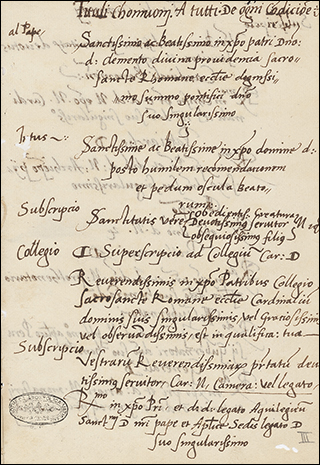 Tituli chonuonj. A tutti. De ogni Codicige
al Pape
Sanctissimo ac Beatissimo in xpo patri Dno:
d: clemento divina providencia sacro=
sancte Rhomane ecclie dignissi=
mo summo pontifici dno
suo singularissimo
Intus
Sanctissime ac beatissime in xpo domine d:
posto humilem recomendationem
et pedum oscula Beato=
rum:
Subscripcio
Sanctitutis vere
obedientiss: Creatura
Devotissimo servitor N
obsequiosissimo filio
Collegio
Superscripcio ad Collegiu Car: D
Reverendissimis in xpo Patribus Collegio
Sacrosancte Romane ecclie Cardinaliu
dominis suis singularissimis vel Graciosissimis
vel observandissimis, est in qualifica: tua
Subscripcio
Vestraru Reverendissimar prtatu deu
tissimo servitor, Car: N, Camera: vel legato
Rmo in xpo Pri: et d: d: legato Aquilegien
Sanct mi D nri pape et Aplice Sedis legato D
suo singularissimo
III